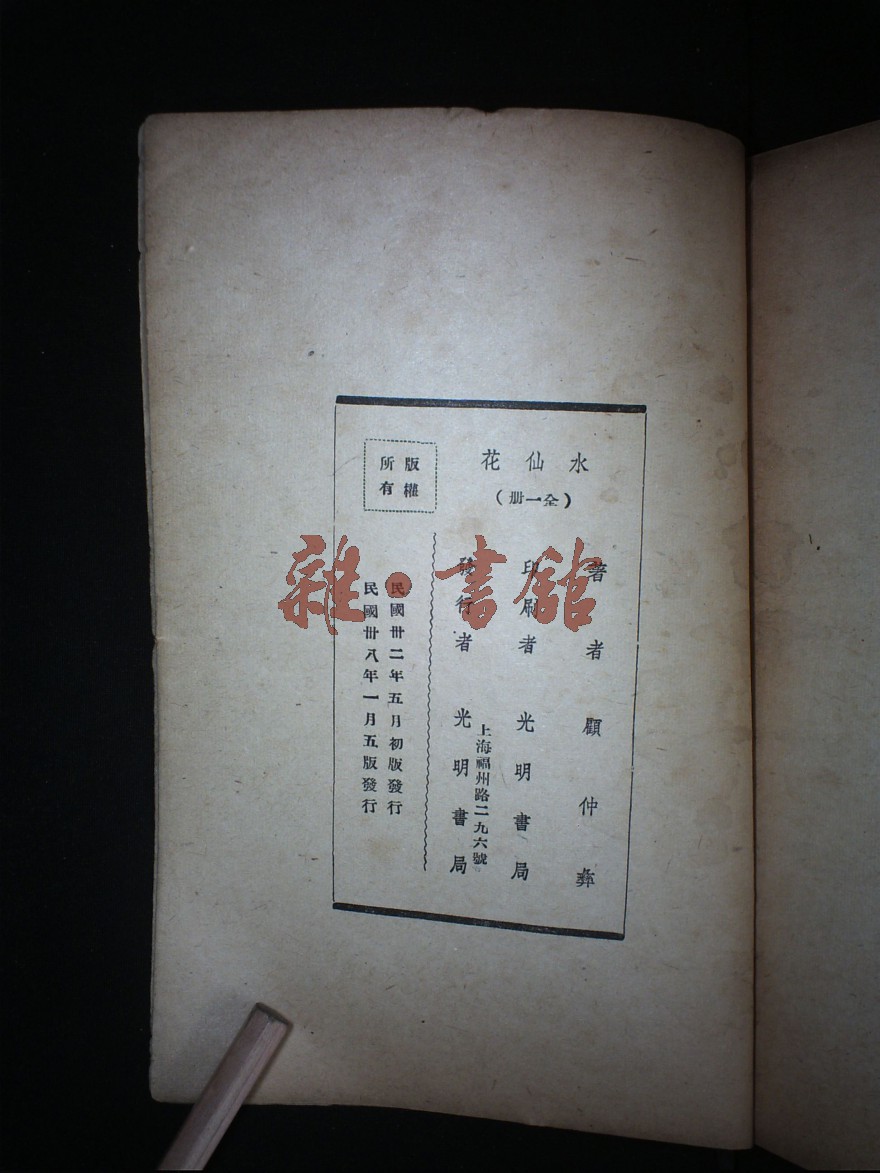 水仙花
（全一册）
著者 顧仲彝
印刷者 光明書局
上海福州路二九六號
發行者 光明書局
版權
所有
民國卅二年五月初版發行
民國卅八年一月五版發行
雜·書館